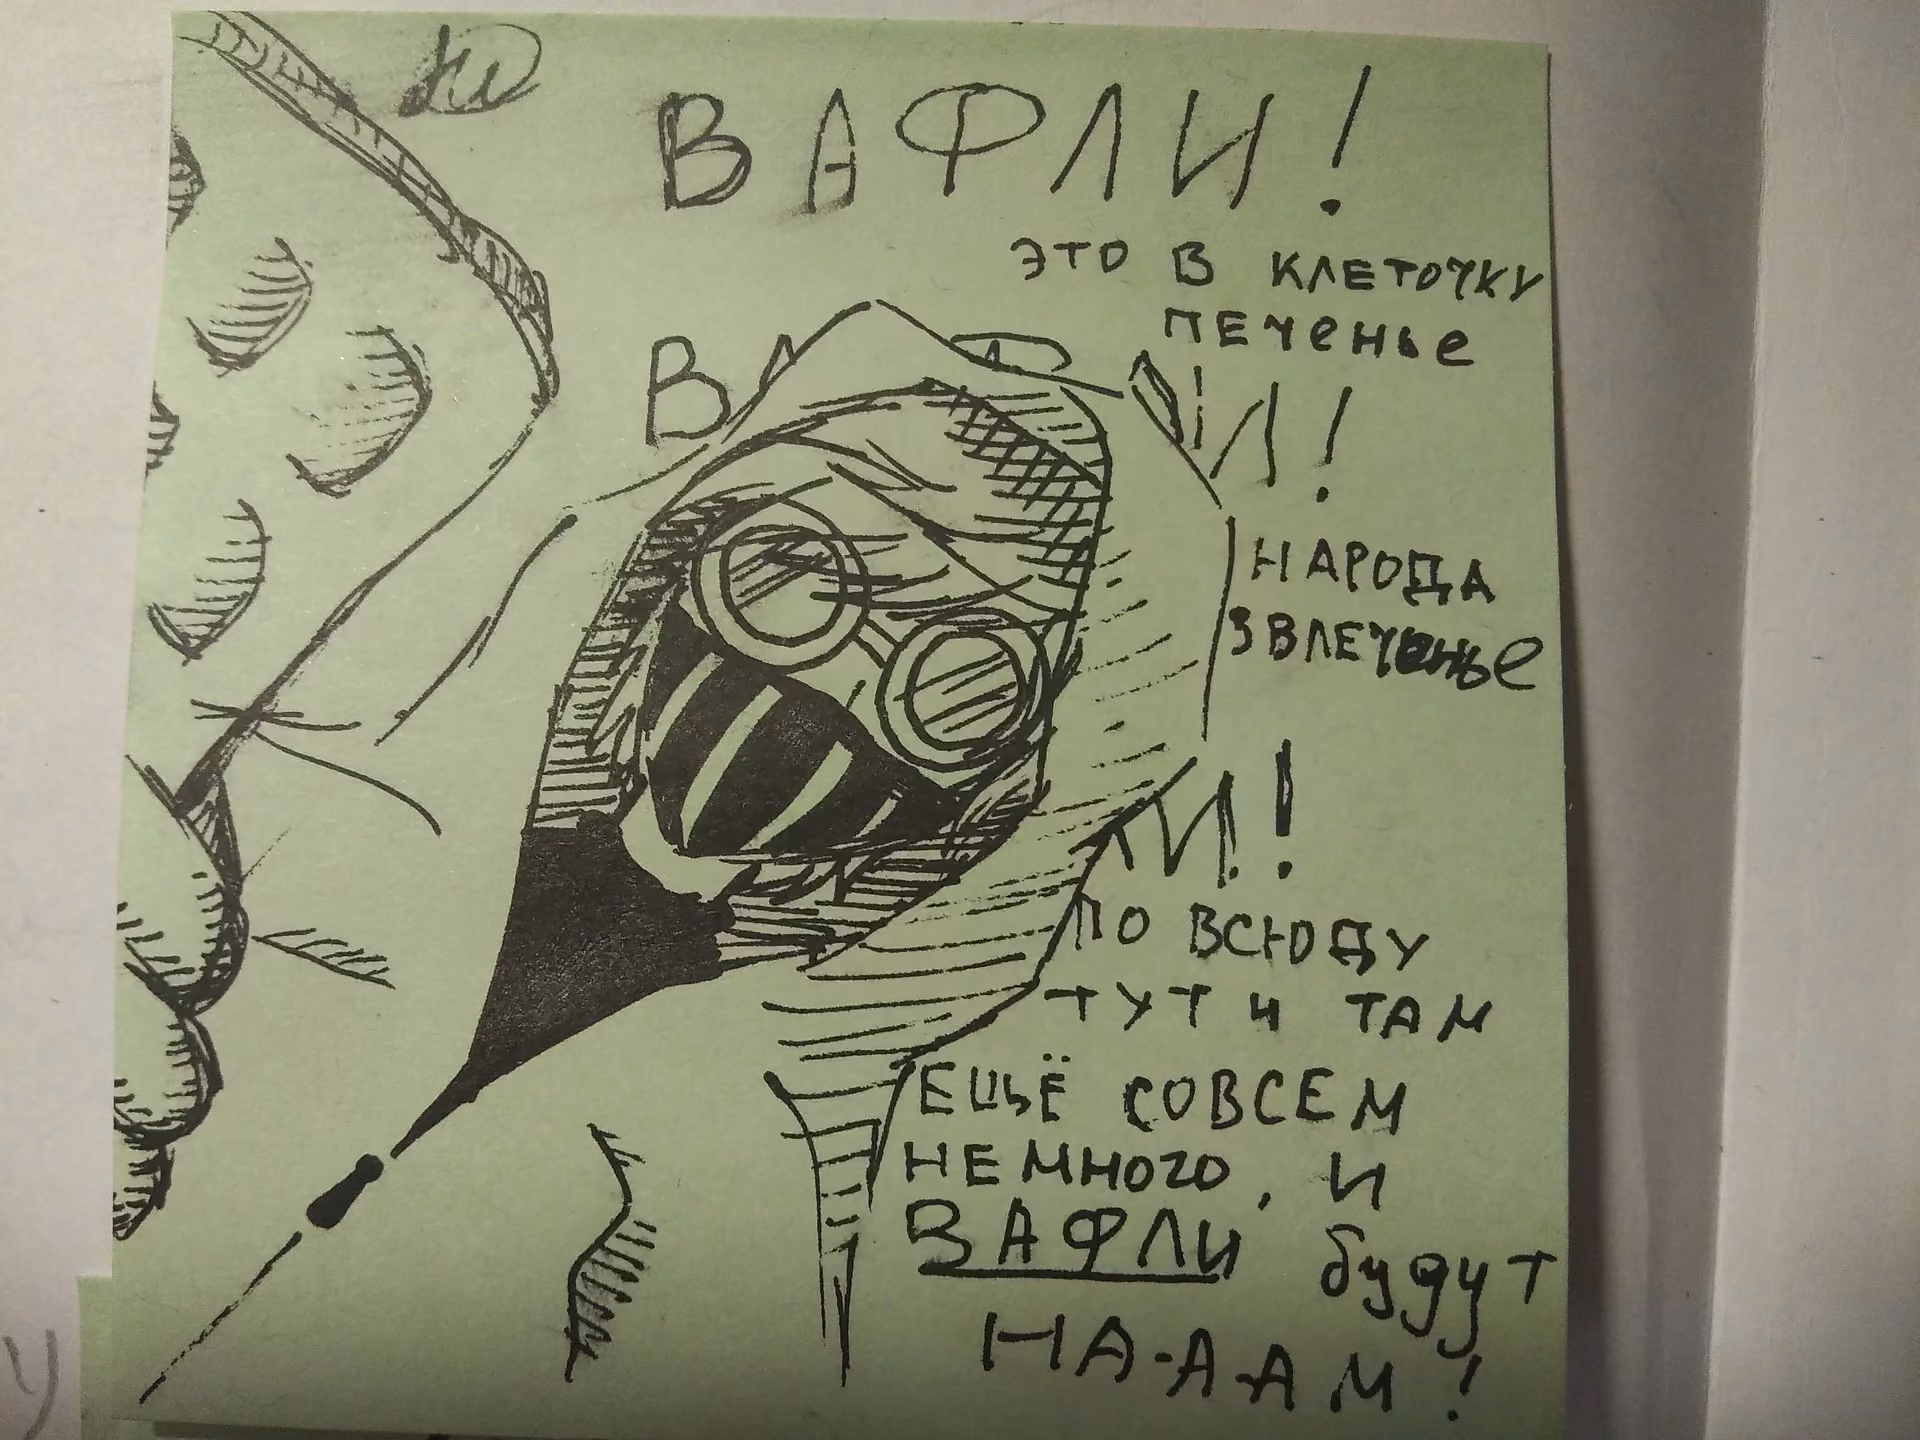 ВАФЛИ!
ЭТО В КЛЕТОЧКУ
ПЕЧЕНЬЕ
ВАФЛИ!
НАРОДА
ЗВЛЕЧЕНЬЕ
ЛИ!
ПО ВСЮДУ
ТУТ И ТАМ
ЕЩЁ СОВСЕМ
НЕМНОГО, И
ВАФЛИ будут
НА-А-АМ!
У